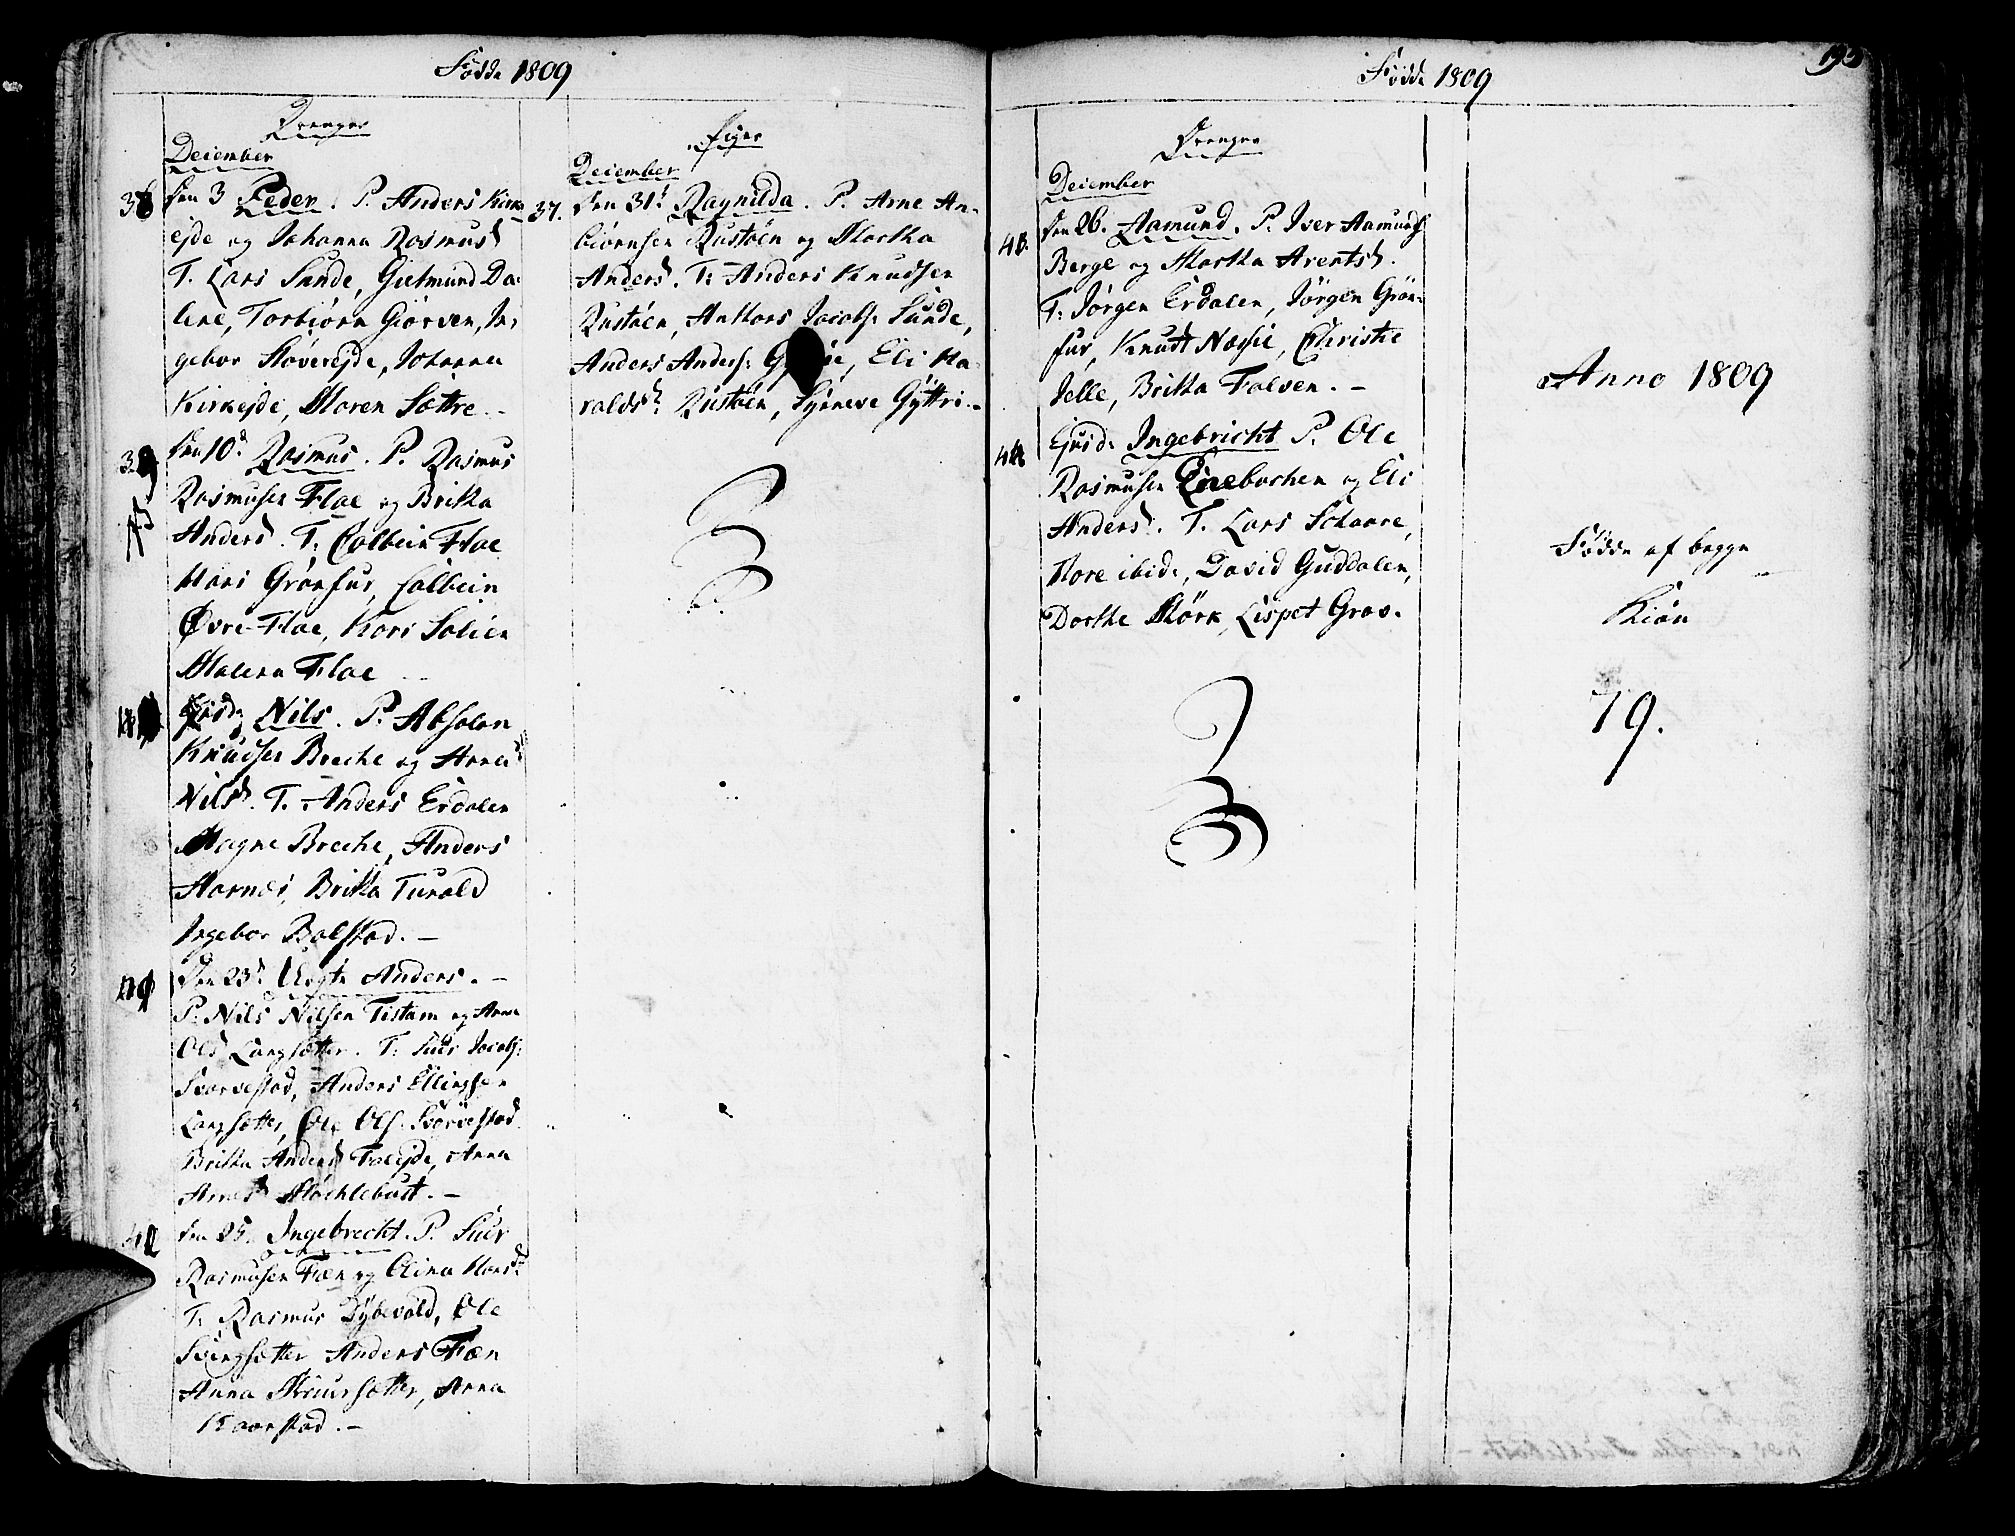 Födde 1809
Drenger
Deiember
38 den 3 Peder. P. Anders Kirke
ejde og Johanna Rasmusd
T. Lars Sunde, Gutmund Da-
lene, Torbiörn Giörven, In-
gebor Slöverejde, Johanna
Kirkejde, Maren Sættre. -
39 den 10d Rasmus. P. Rasmus
Rasmusen Floe og Britha
Andersd. T. Colbein Floe
Hans Grönfur, Colbein
Övre-Floe, Kari Solien
Malena Floe
Ejusd: Nils. P. Absolon
Knudsen Breche og Anna
Nilsd. T. Anders Erdalen
Magne Breche, Anders
Aarnes, Britha Turald
Ingebor Bolstad. -
den 23d Anders. -
P. Nils Nilsen Tistam og Anna
Olsd Langsætter. T. Siur Jacobs:
Svarvestad, Anders Ellingsen
Langsætter, Ole Ols: Svarvestad
Britha Andersd Faleide, Anna
Arnesd Myklebust. -
42 den 25. Ingebrecht. P. Siur
Rasmusen Fæn og Elina Hansd:
T. Rasmus Dybevold, Ole
Svingsætter Anders Fæn
Anna Skriursætter, Anna
Kaarstad. -
Piger
Deiember
37. den 31d Ragnilda. P. Arne An-
biörnsen Rustöen og Martha
Andersd. T: Anders Knudsen
Rustöen, Anthors Jacobs: Sunde,
Anders Anders: Eli Ha-
raldsd: Rustöen, Synneve Gyttri. -
Födde 1809
Drenger
Deiember
43. den 26. Aamund. P. Iver Aamunds
Berge og Martha Arentsd.
T: Jörgen Erdalen, Jörgen Grön-
fur, Knudt Nesie, Christie
Jelle, Britha Folven. -
44 Ejusd: Ingebricht P. Ole
Rasmusen og Eli
Andersd. T. Lars Schaare,
Hore ibid:, David Guddalen,
Dorthe Mörk, Lispet Grov.
Anno 1809
Födde af begge
Kiön
79.